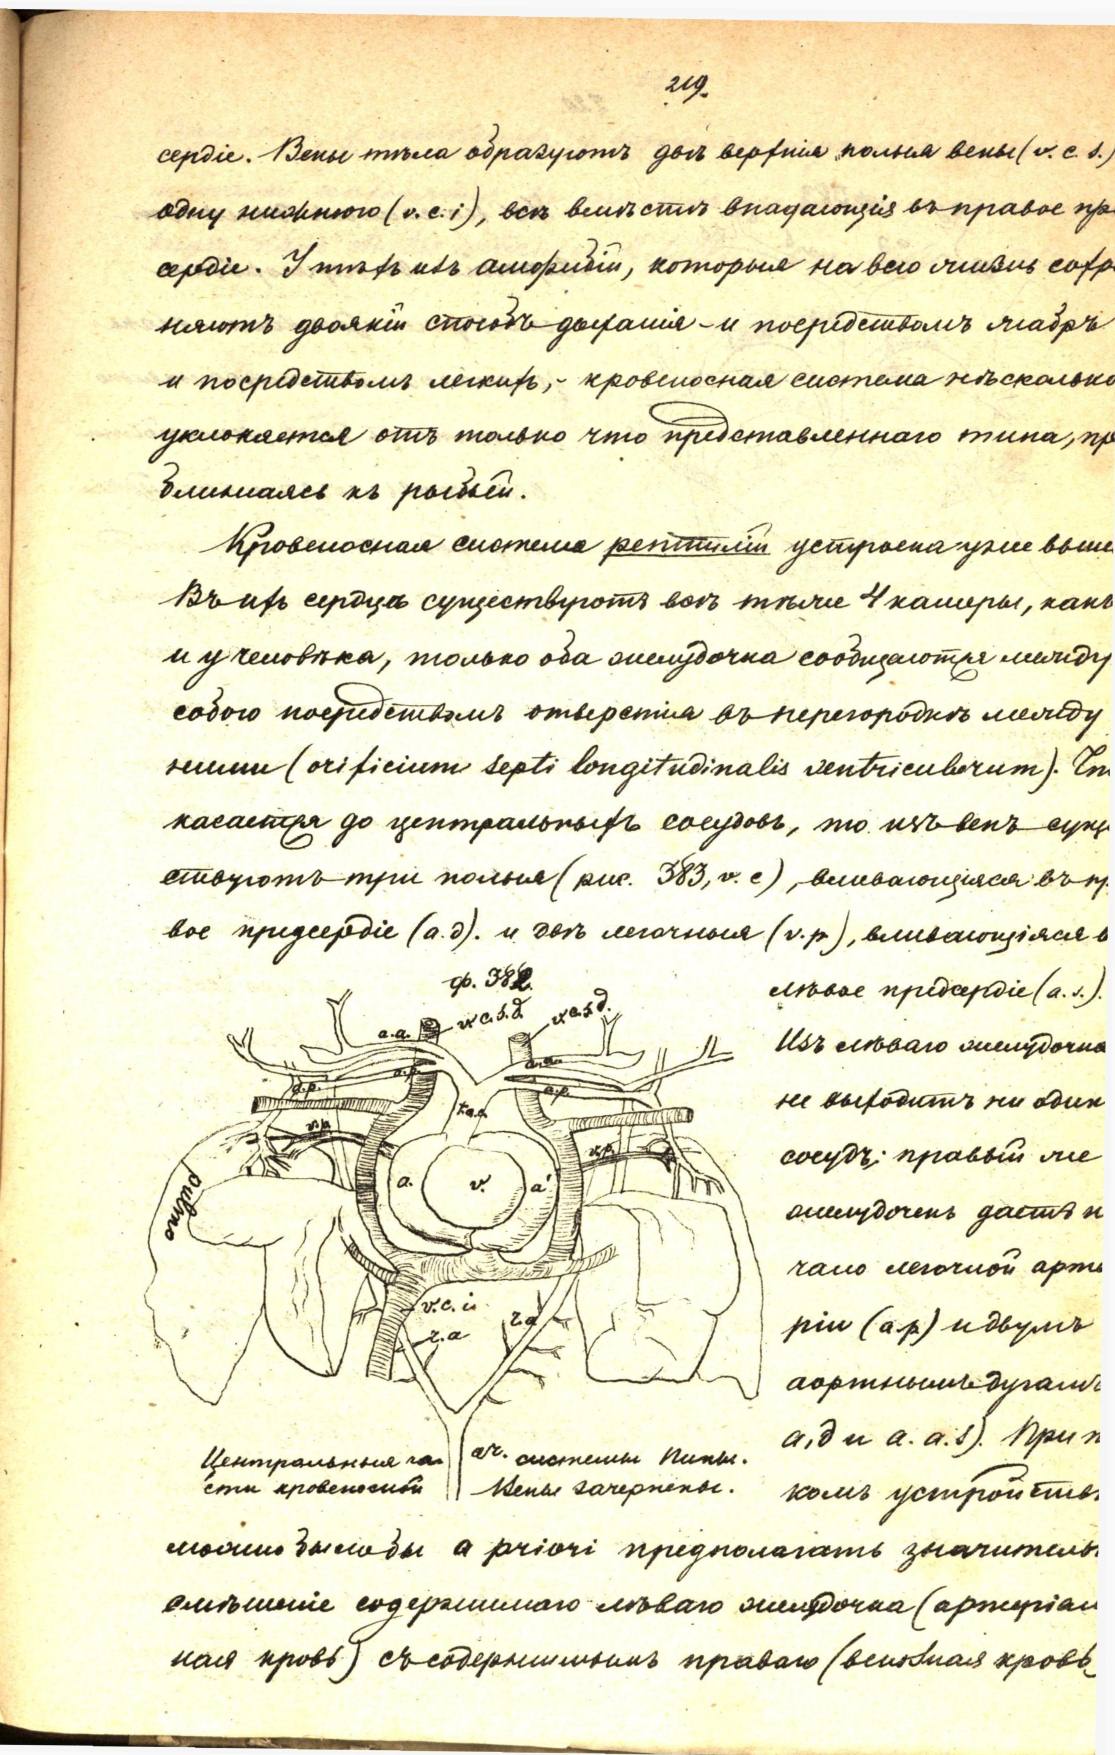 219.
сердіе. Вены тѣла образуютъ двѣ верхнія полыя вены (v. c. s.)
одну нижнюю (v. c. i), всѣ вмѣстѣ впадающія въ правое пр
сердіе. У тѣхъ изъ амфибій, которыя на всю жизнь сохра
няютъ двоякій способъ дыханія – и посредствомъ жабръ
и посредствомъ легкихъ, – кровеносная система нѣсколько
уклоняется отъ только что представленнаго типа, пр
ближаясь къ рыбьей.
Кровеносная система рептилій устроена уже выше
Въ ихъ сердцѣ существуютъ всѣ тѣже 4 камеры, какъ
и у человѣка, только оба желудочка сообщаются между
собою посредствомъ отверстія въ перегородкѣ между
ними (orificium septi longitudinalis ventriculorum). Чт
касается до центральныхъ сосудовъ, то изъ венъ суще
ствуютъ три полыя (рис. 383, v. c), вливающіяся въ пр
вое предсердіе (a. d). и двѣ легочныя (v. p), вливающіяся в
ф. 382.
лѣвое предсердіе (a. s.).
v. c. s. d. v. c. s. d.
a. a. a. a.
Изъ лѣваго желудочка
a. p. a. p. a. p.
не выходитъ ни один
t. a. a.
v. p. v. p.
сосудъ; правый же
a. v. a'
pulmo
желудочекъ даетъ н
чало легочной арте
v. c. i.
r. a r. a
ріи (a. p) и двумъ
аортнымъ дугамъ
a, d и a. a. s). При т
Центральныя ча- системы Пипы.
сти кровеносной Вены зачернены.
комъ устройств
можно было бы a priori предполагать значитель
смѣшеніе содержимаго лѣваго желудочка (артеріал
ная кровь) съ содержимымъ праваго (венозная кровь